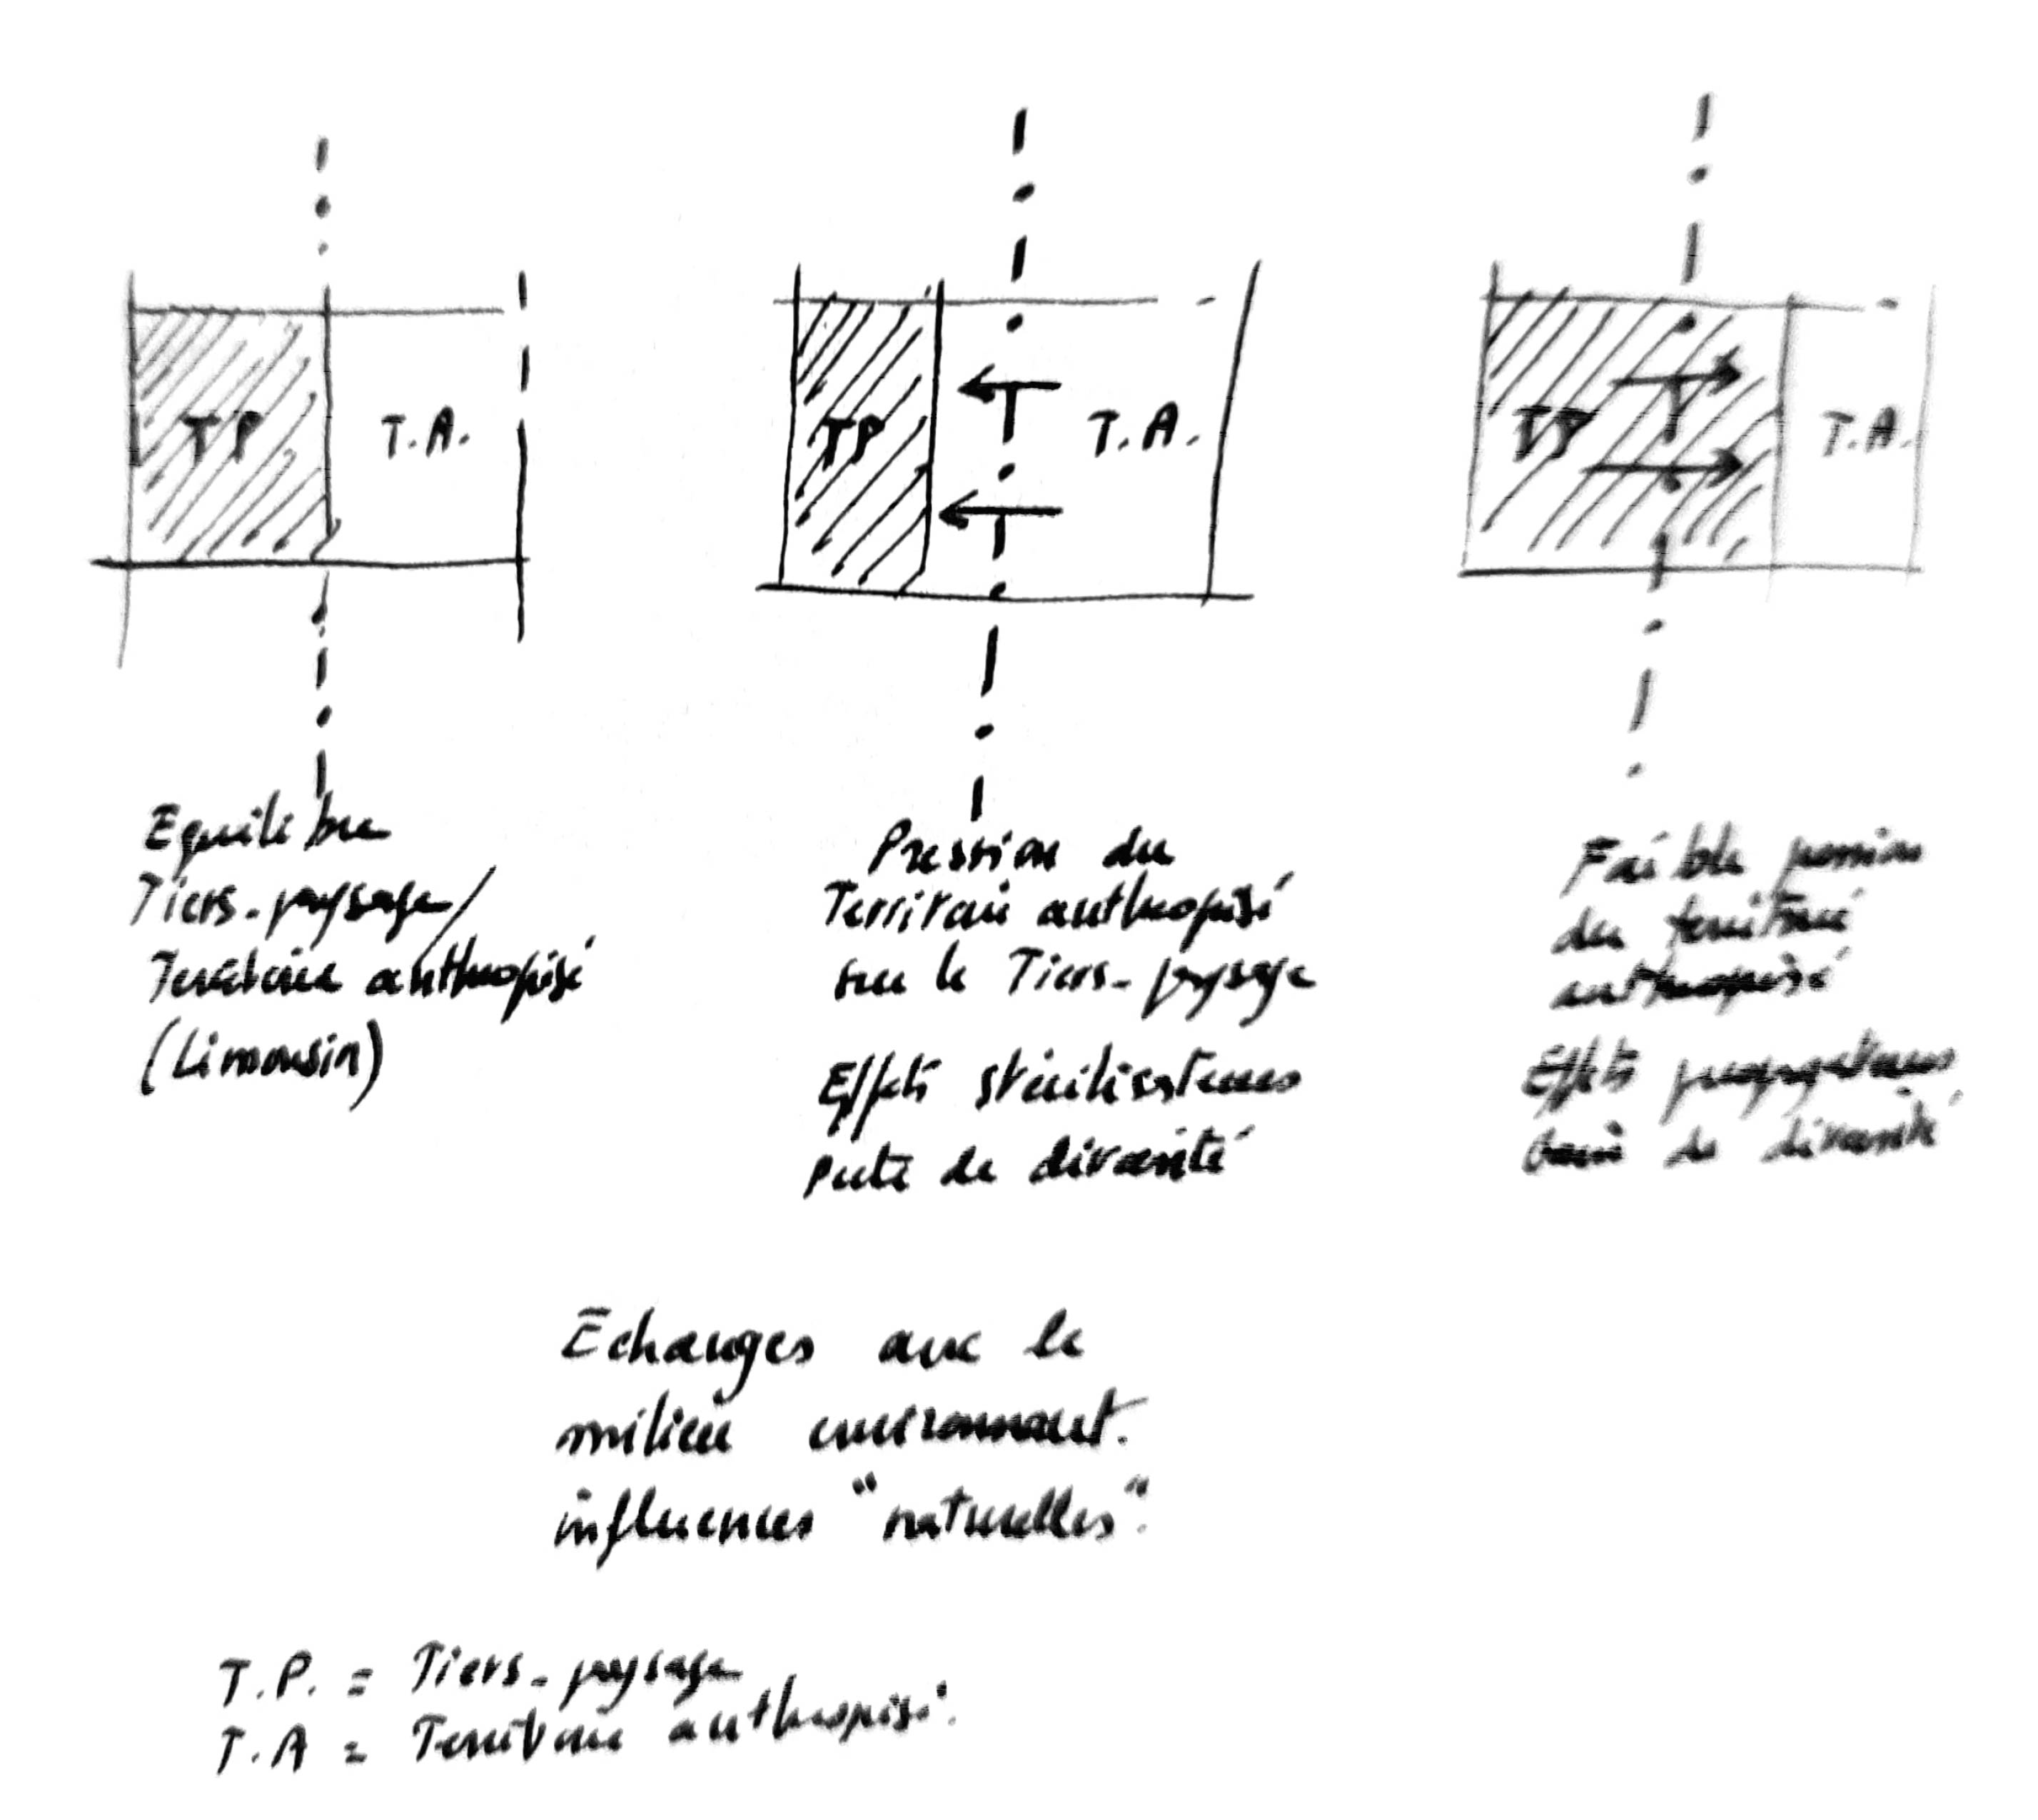 TP
T.A.
TP
T.A.
TP
T.A.
Equilibre
Tiers-paysage/
Territoire anthropisé
(Limousin)
Pression du
Territoire anthropisé
sur le Tiers-paysage
Effets stérilisateurs
perte de diversité
Faible pression
du territoire
anthropisé
Effets propagateurs
de diversité
Echanges avec le
milieu environnant.
influences "naturelles".
T.P. = Tiers-paysage
T.A = Territoire anthropisé.